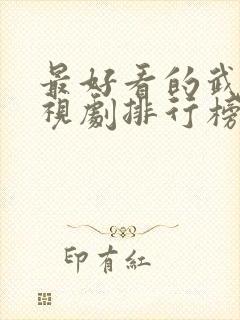 最好看的武
視劇排行榜
印有紅